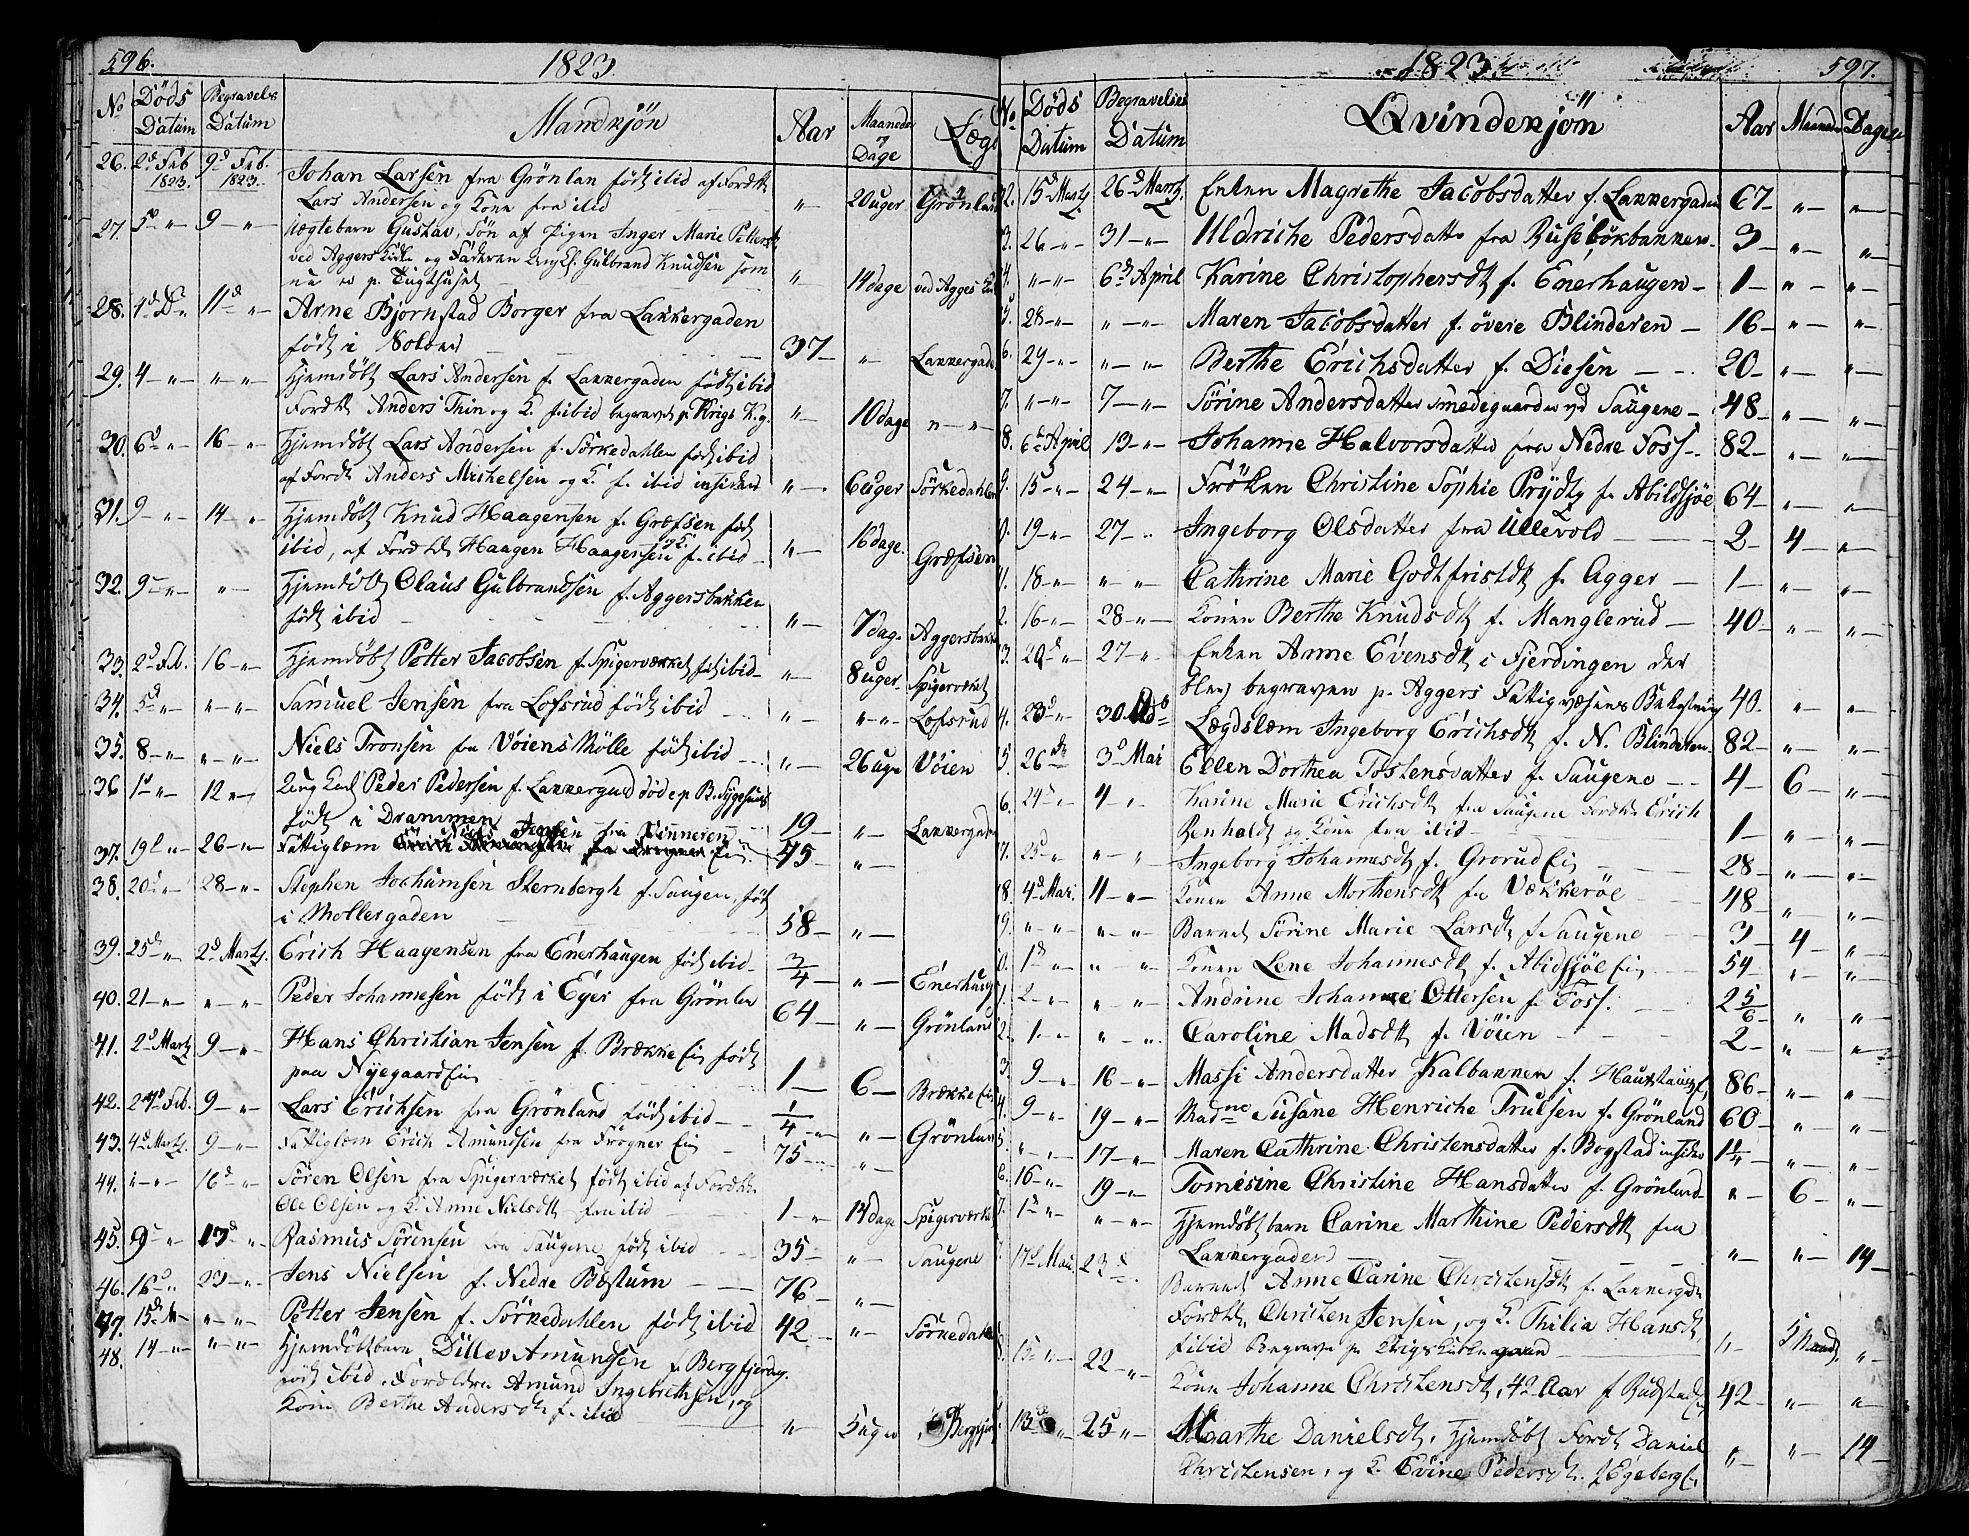 596.
1823.
No Döds Datum Begravelses Datum Mandkjön Aar Maaneder og Dage Lægd
26. 2d Feb. 1823. 9d Feb. 1823. Johan Larsen fra Grönlan født ibid af Forældre
Lars Andersen og Kone fra ibid " 20 uger Grönland
27. 5d " 9 " uægtebarn Gustav, Søn af Pigen Inger Marie Petters
ved Aggers Kirke og Faderen Ungkl. Gulbrand Knudsen som
nu er p. Tugthuset " 14 dage ved Aggers
28. 4d 11d " Arne Bjørnstad Borger fra Lakkergaden
født i Solør 37 " Lakkergade
29. 4 " " " Hjemdøbt Lars Andersen f. Lakkergaden født ibid
Forældre Anders Thin og K. f. ibid begravet p. Krigs K.g. " 10 dage " "
30. 6d " 16 " Hjemdøbt Lars Andersen f. Sörkedahlen født ibid
af Forældre Anders Mickelsen og K. f. ibid " 6 uger Sörkedahlen
31. 9 " 14 " Hjemdøbt Knud Haagensen f. Græfsen født
ibid, af Forældre Haagen Haagensen og K. f. ibid " 16 dage. Græfsen
32. 9 " " Hjemdøbt Olaus Gulbrandsen f. Aggersbakken
født ibid " 7 dag. Aggersbak
33. 2d Feb. 16 " Hjemdøbt Petter Jacobsen f. Spigerværket født ibid " 8 uger Spigerværket
34. 5d " " " Samuel Jensen fra Lofsrud født ibid " " " Lofsrud
35. 8 " " " Niels Tronsen fra Vöiens Mölle født ibid " 26 uger Vöien
36 1d " 12 " Ung Karl Peder Pedersen f. Lakkergad död p. B. Sygehuus
født i Drammen 19 " Lakkergaden
Jensen fra Vinneren
37. 19d " 26 " Fattiglæm 45 "
38. 20d " 28 " Stephen Jochumsen Sternbergh f. Saugen, født
i Møllergaden 58 "
39. 25d " 2d Martz. Erich Haagensen fra Enerhaugen født ibid 3/4 " Enerhaug
40. 21 " " " Peder Johannesen født i Eger fra Grönlan 64 " Grönland
41. 2d Martz 9 " Hans Christian Jensen f. Brække Ei født
paa Nyegaard Ei 1 6 Brække Ei
42. 24d Feb. 9 " Lars Erichsen fra Grönland født ibid 1/4 " Grönland
43. 4d Martz. 9 " Fattiglæm Erich Amundsen fra Frogner Ei 75 "
44. " " 16d " Sören Olsen fra Spigerværket født ibid af Forældre
Ole Olsen og K. Anne Nielsdtr fra ibid 1 14 dage Spigerværket
45. 9 " 13d " Rasmus Sörensen fra Saugene født ibid 35 " Saugene
46. 16d " 23 " Jens Nielsen f. Nedre Bæstum 76 "
47. 15d M " " Petter Jensen f. Sörkedahlen født ibid 42 " Sörkedahl
48. 14 " " " Hjemdöbtbarn Dillev Amundsen f. Bergfjerdg.
født ibid, Forældre Amund Ingebrethsen, og
Kone Berthe Andersdtr f. ibid " 5 uger Bergfjer
1823
597.
No. Döds Datum Begravelses Datum Qvindekjön Aar Maaneder Dage
2. 15d Martz 26d Martz. Enken Magrethe Jacobsdatter f. Lakkergaden 67 " "
3. 26 " 31 " Uldriche Pedersdatter fra Rusebökbakken 3 " "
4. " " 6d April Karine Christophersdtr f. Enerhaugen 1 " "
5. 28 " " " Maren Jacobsdatter f. övere Blinderen 16 " "
6. 29 " " " Berthe Erichsdatter f. Diesen 20 " "
7. " " 7 " Sörine Andersdatter Smedegaarden vd Saugene 48 " "
8. 6d April 13 " Johanne Halvorsdatter fra Nedre Foss 82 " "
9. 15 " 24 " Fröken Christine Sophie Prydtz f. Abildsjöe 64 " "
0. 19 " 27 " Ingeborg Olsdatter fra Ullevold 2 4 "
1. 18 " " " Cathrine Marie Godtfristdtr f. Agger 1 " "
2. 16 " 28 " Konen Berthe Knudsdtr f. Manglerud 40 " "
3. 20d " 27 " Enken Anne Evensdtr i Fjerdingen der
blev begraven p. Aggers Fattigvæsens Bekostning 40 " "
4. 23d " 30 Lægdslæm Ingeborg Erichsdtr f. N. Blinderen 82 " "
5. 26de 3d Mai Ellen Dorthea Tostensdatter f. Saugene 4 6 "
6. 24d " 4 " Karine Marie Erichsdtr fra Saugene Forældre Erich
Benholdt og Kone fra ibid 1 " "
7. 25d " " " Ingeborg Johannesdtr f. Grorud Ei 28 " "
8. 4d Mai. 11 " Konen Anne Morthensdtr fra Vækkeröe 48 " "
9. " " " " Barnet Sörine Marie Larsdtr f. Saugene 3 4 "
0. 1d " " " Konen Lene Johannesdtr f. Abildsjöe Ei 54 " "
1. 2 " " " Andrine Johanne Ottersen f. Foss. 2 5/6 " "
2. 1 " " " Caroline Madsdtr f. Vöien 2 " "
3. 9 " 16 " Massi Andersdatter Kalbakken f. 86 " "
4. 9 " 19 " Madme Susane Henriche Trulsen f. Grönland 60 " "
5. " " 17 " Maren Cathrine Christensdatter f. Bogstad 1 " "
6. 16 " 19 " Tomesine Christine Hansdatter f. Grönland " 6 "
7. 1d " " " Hjemdöbt barn Carine Marthine Pedersdtr fra
Lakkergaden " " 14
17d Mai. 23d Barnet Anne Carine Christensdtr f. Lakkergaden
Forældre, Christen Jensen, og K. Thilia Hansdtr
f. ibid Begravet p. Krigskirkegaard " 5 Maand. "
8. 15 " 22 " Konen Johanne Christensdtr, 42 Aar f 42 " "
13d " 25d " Marthe Danielsdtr, Hjemdöbt Forældre Daniel
Christensen, og K. Evine Pedersdtr. f Egeberg Ei " " 14